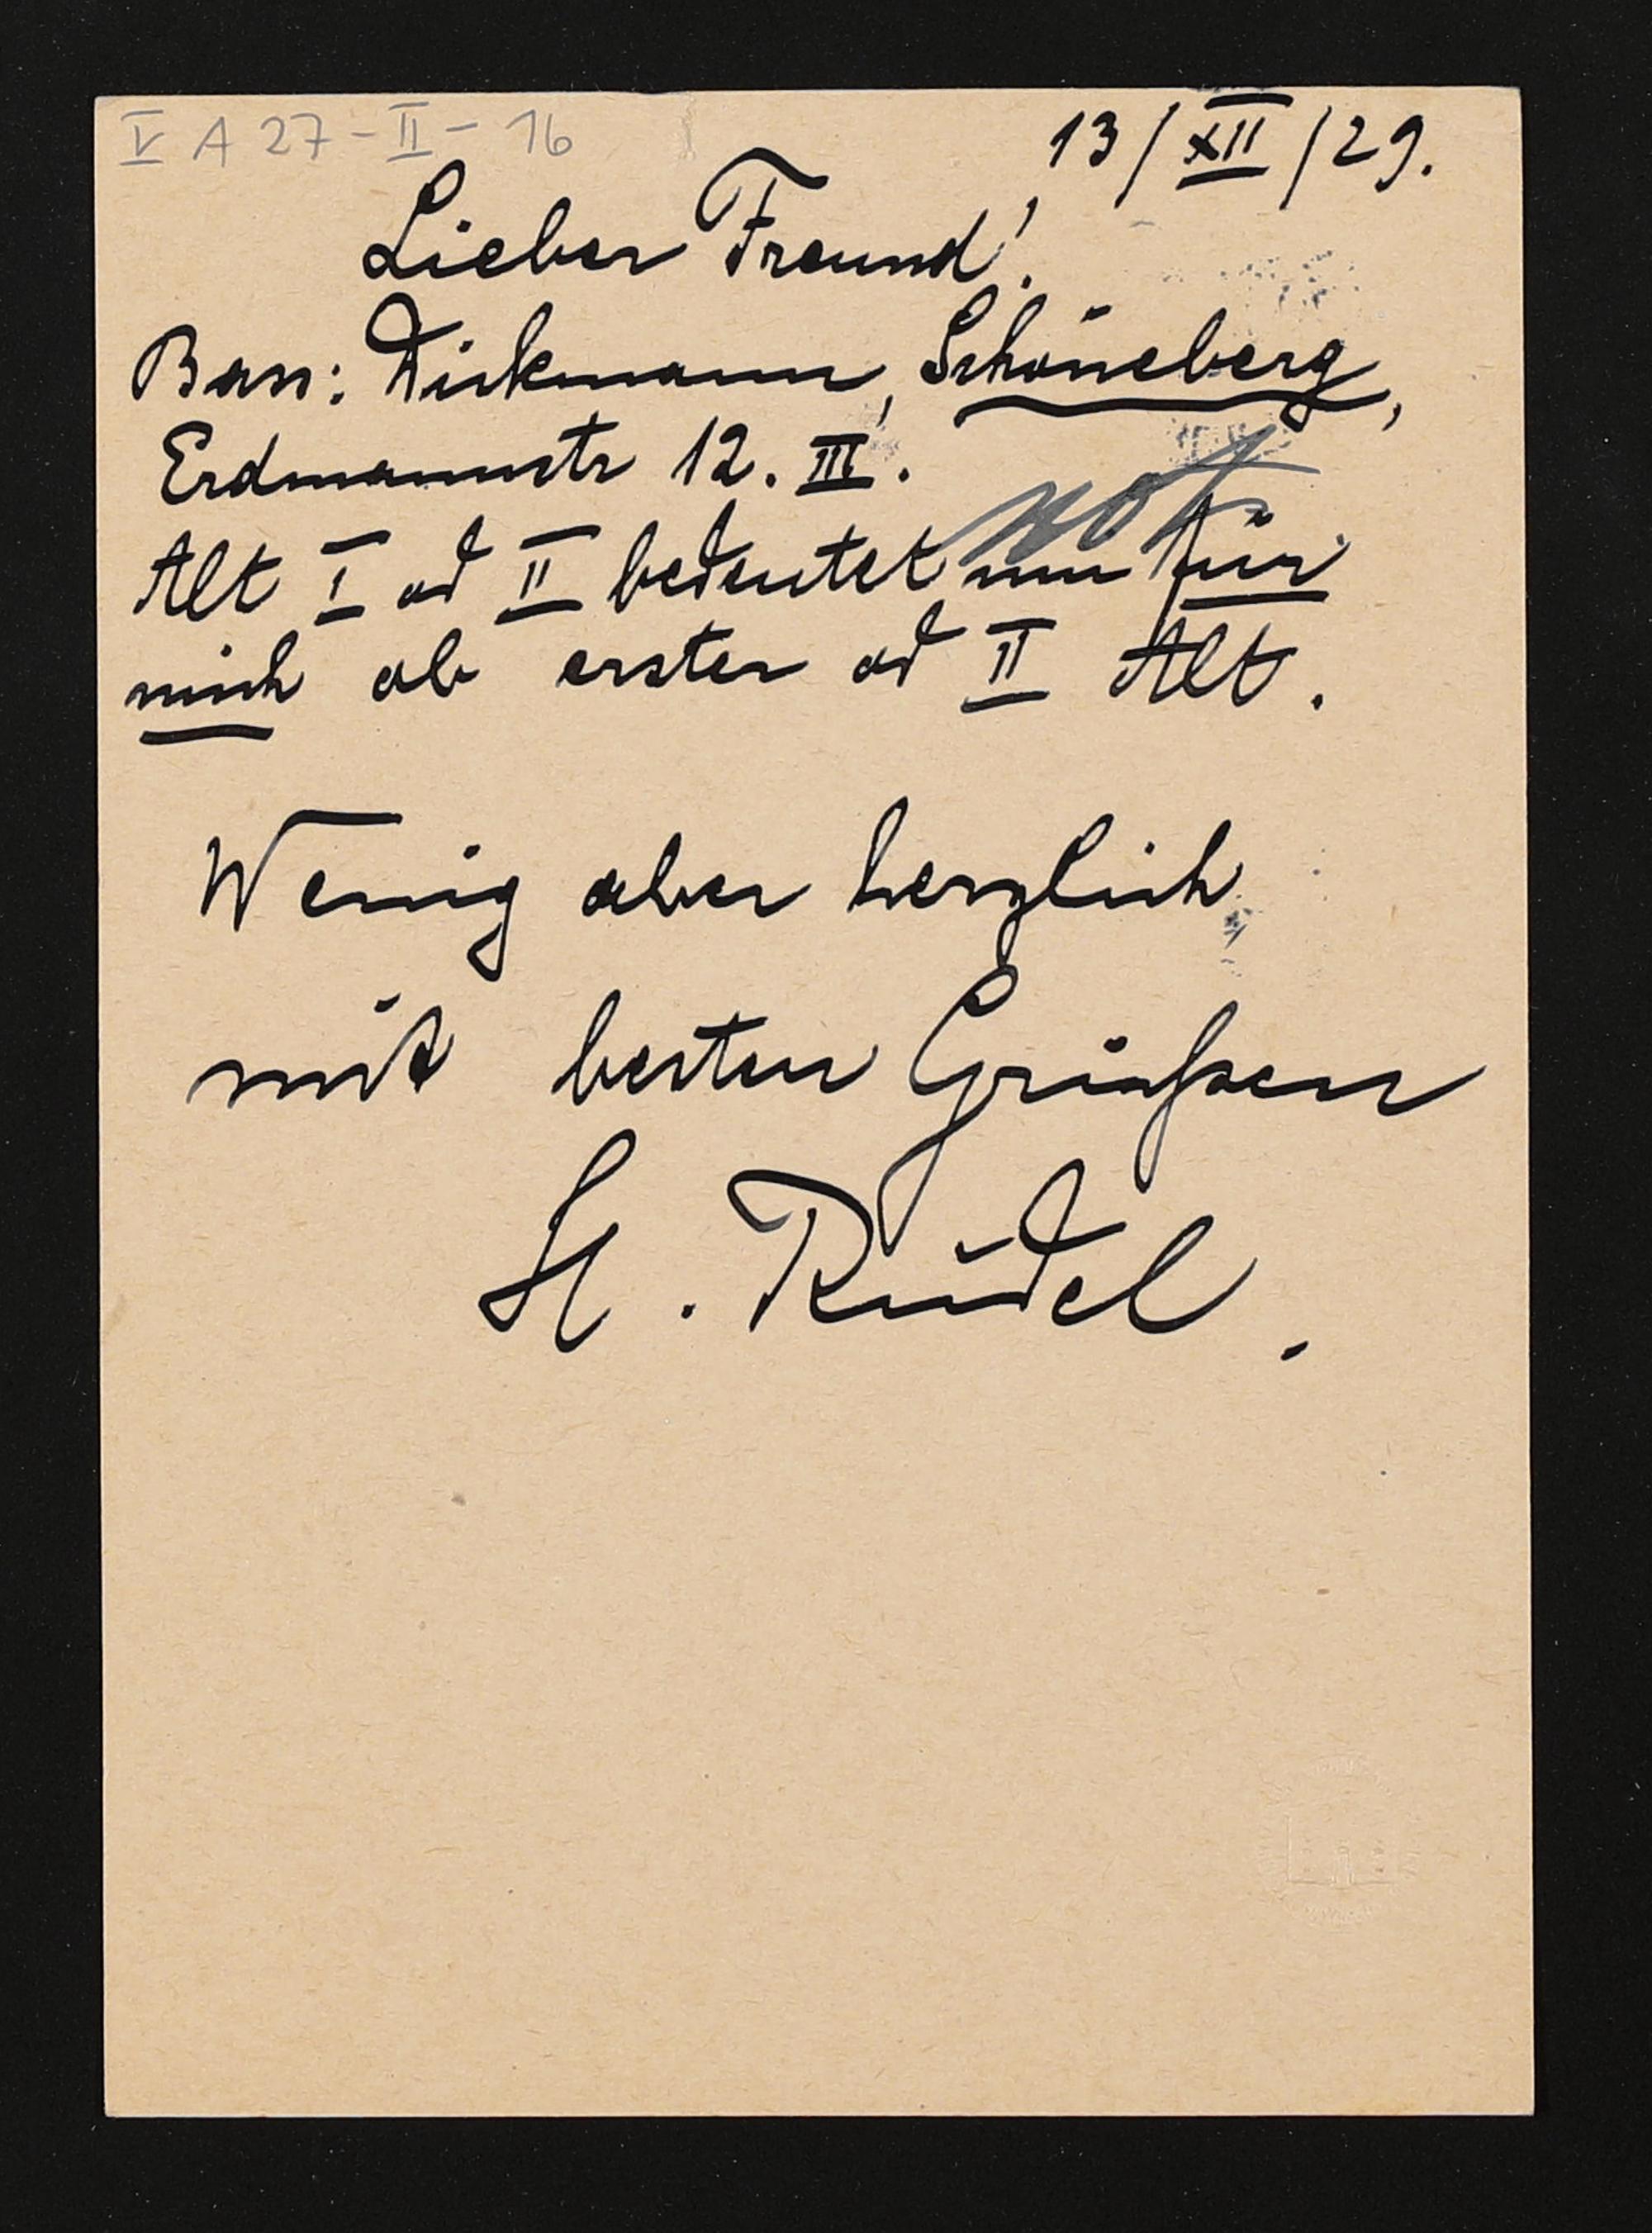 V A 27 - II - 16
13/XII/29.
Lieber Freund!
Bass: Dirkmann, Schöneberg,
Erdmannstr 12. III.
not
Alt I od II bedeutet nun für
mich ob erster od II Alt.
Wenig aber herzlich
mit besten Grüßen
H. Rüdel.